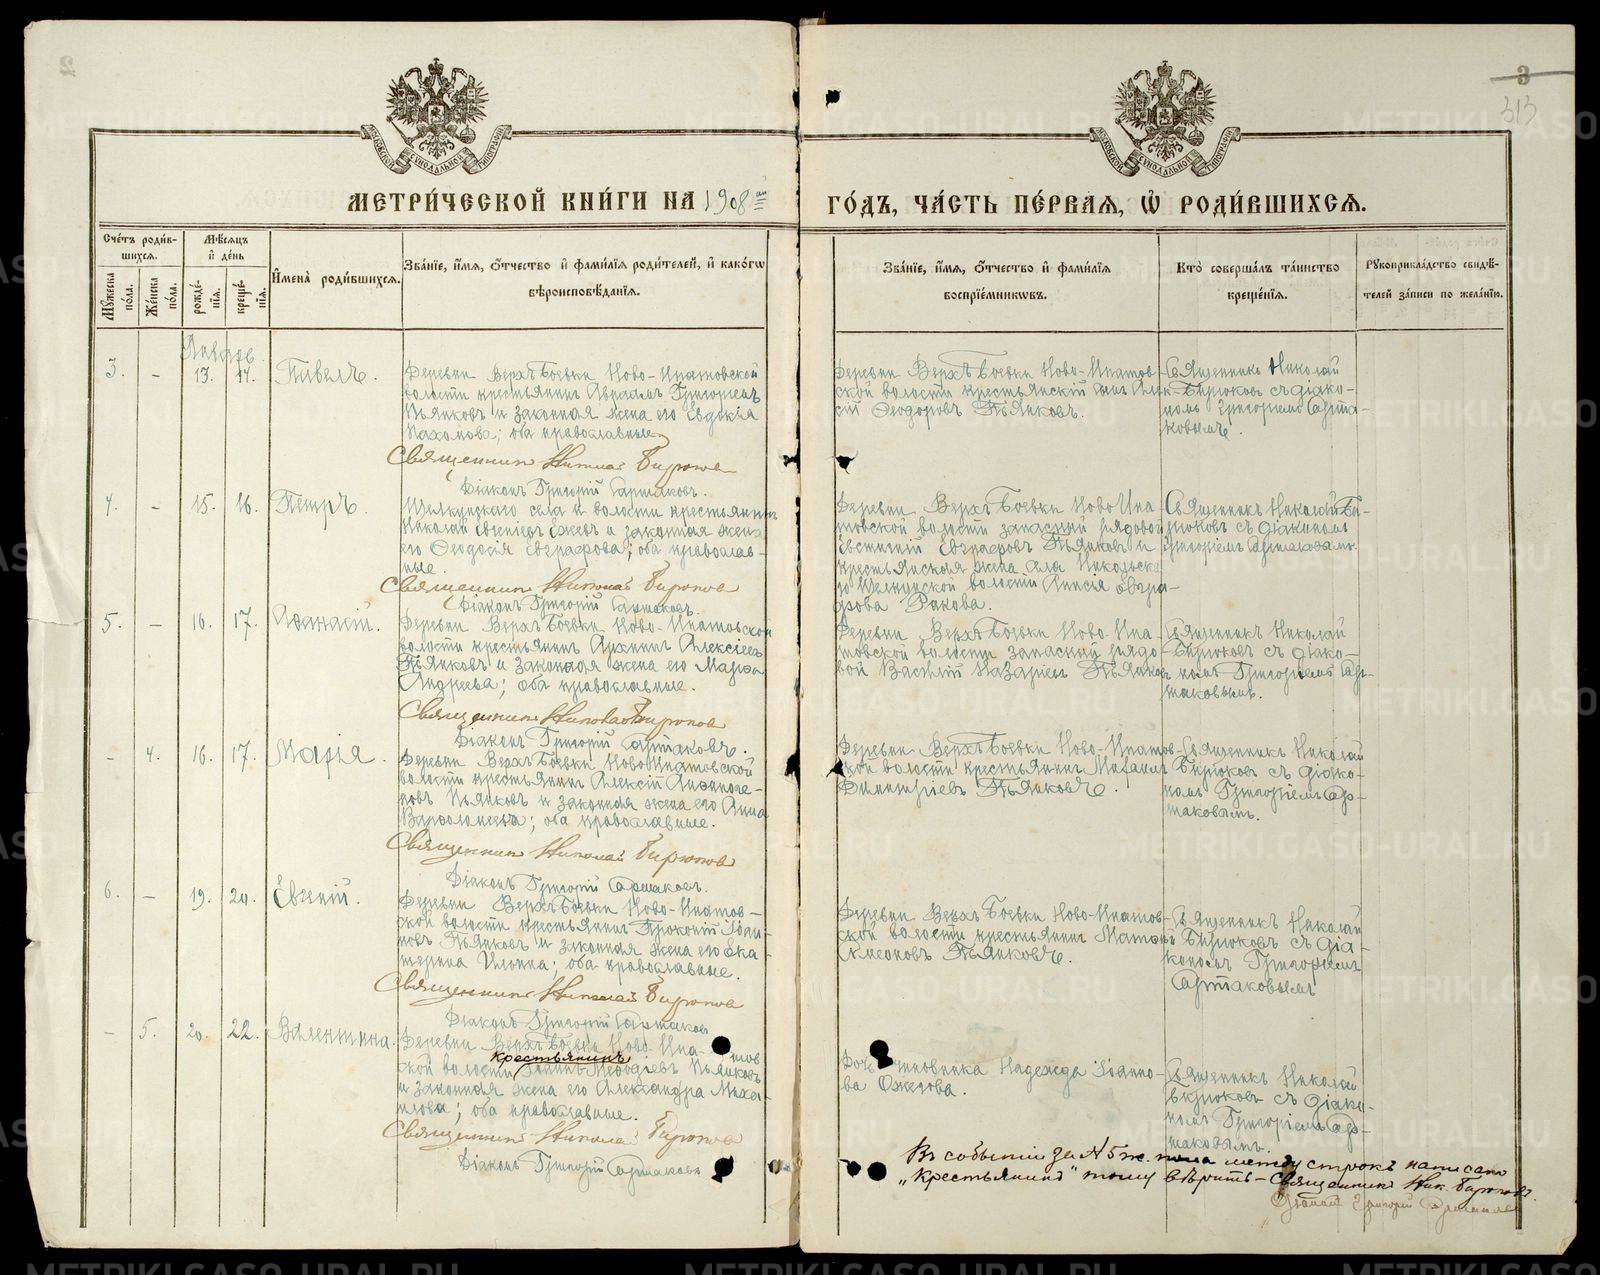 3
313
МЕТРИ́ЧЕСКОЙ КНИ́ГИ НА 1908 ГО́ДЪ, ЧА́СТЬ ПЕ́РВАЯ, Ѡ҆ РОДИ́ВШИХСѦ.
Сче́тъ роди́в-
шихсѧ.
Мѣ́сѧцъ
и҆ де́нь
Мꙋ́жеска
по́ла.
Же́нска
по́ла.
рожде́-
нїѧ.
креще́-
нїѧ.
И҆мена̀ роди́вшихсѧ.
Зва́нїе, и҆́мѧ, ѻ҆́тчество и҆ фами́лїѧ роди́телей, и҆ како́гѡ
вѣроисповѣ́данїѧ.
Зва́нїе, и҆́мѧ, ѻ҆́тчество и҆ фами́лїѧ
воспрїе́мникѡвъ.
Кто̀ соверша́лъ та́инство
креще́нїѧ.
Рꙋкоприкла́дство свидѣ́-
телей за́писи по жела́нїю.
Январь.
3. - 13. 14. Павелъ.
Деревни Верхъ Боевки Ново-Ипатовской
волости крестьянинъ Авраамъ Григорьевъ
Пьянковъ и законная жена его Евдокія
Пахомова; оба православные.
Священник Николай Бирюков
Діаконъ Григорій Сартаковъ.
Деревни Верхъ Боевки Ново-Ипатов-
ской волости крестьянскій сынъ Алек-
сій Ѳеодоровъ Пьянковъ.
Священникъ Николай
Бирюковъ съ діако-
номъ Григоріемъ Сарта-
ковымъ.
4. - 15. 16. Петръ.
Щелкунскаго села и волости крестьянинъ
Николай Евгеніевъ Ежевъ и законная жена
его Ѳеодосія Евграфова; оба православ-
ные.
Священник Николай Бирюков
Діаконъ Григорій Сартаковъ.
Деревни Верхъ Боевки Ново Ипа-
товской волости запасный рядовой
Евстигній Евграфовъ Пьянковъ и
крестьянская жена села Никольска-
го Щелкунской волости Анисія Евгра-
фова Ракова.
Священникъ Николай Би-
рюковъ съ діакономъ
Григоріемъ Сартаковымъ.
5. - 16. 17. Аѳанасій.
Деревни Верхъ Боевки Ново-Ипатовской
волости крестьянинъ Архипъ Алексіевъ
Пьянковъ и законная жена его Марѳа
Андреева; оба православные.
Священник Николай Бирюков
Діаконъ Григорій Сартаковъ.
Деревни Верхъ Боевки Ново-Ипа-
товской волости запасный рядо-
вой Василій Назаріевъ Пьянковъ
Священникъ Николай
Бирюковъ съ діако-
номъ Григоріемъ Сар-
таковымъ.
- 4. 16. 17. Марія.
Деревни Верхъ Боевки Ново Ипатовской
волости крестьянинъ Алексій Аѳиноге-
новъ Пьянковъ и законная жена его Анна
Варѳоломеева; оба православные.
Священник Николай Бирюков
Діаконъ Григорій Сартаковъ.
Деревни Верхъ Боевки Ново-Ипатов-
ской волости крестьянинъ Михаилъ
Димитріевъ Пьянковъ.
Священникъ Николай
Бирюковъ съ діако-
номъ Григоріемъ Сар-
таковымъ.
6. - 19. 20. Евгеній.
Деревни Верхъ Боевки Ново-Ипатов-
ской волости крестьянинъ Прокопій Іоан-
новъ Пьянковъ и законная жена его Ека-
терина Ильина; оба православные.
Священник Николай Бирюков
Діаконъ Григорій Сартаков
Деревни Верхъ Боевки Ново-Ипатов-
ской волости крестьянинъ
Симеоновъ Пьянковъ.
Священникъ Николай
Бирюковъ съ діа-
кономъ Григоріемъ
Сартаковымъ
- 5. 20. 22. Валентина.
Деревни Верхъ Боевки Ново-Ипатов
крестьянинъ
ской волости Іоаннъ Меѳодіевъ Пьянковъ
и законная жена его Александра Михаи-
лова; оба православные.
Священник Николай Бирюков
Діаконъ Григорій Сартаковъ
Дочь чиновника Надежда Іоанно-
ва Ожегова.
Священникъ Николай
Бирюковъ съ діако-
номъ Григоріемъ Сар-
таковымъ.
Въ событіи за № 5 ж. пола между строкъ написано
„крестьянинъ" тому вѣрить - Священникъ Ник. Бирюков.
Діакон Григорій Сартаков
METRIKI.GASO-URAL.RU